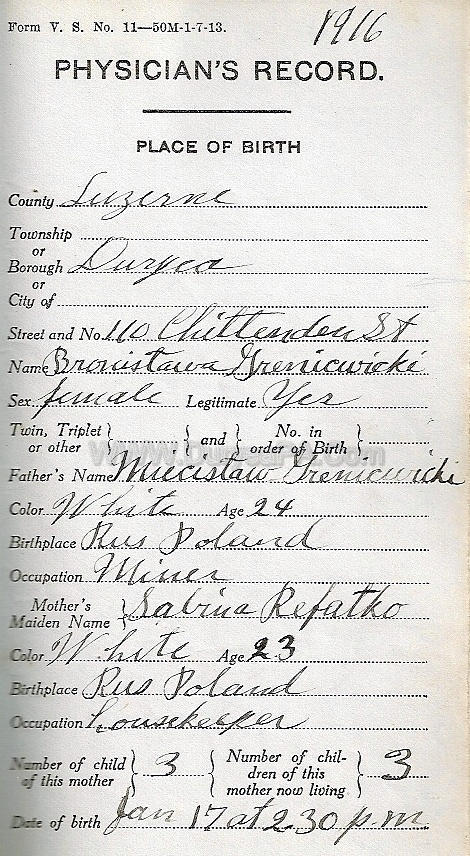 Form V. S. No. 11—50M-1-7-13.
1916
PHYSICIAN'S RECORD.
PLACE OF BIRTH
County Luzerne
Township
or
Borough Duryea
or
City of
Street and No. 110 Chittenden St
Name Bronistawa Grenicwicki
Sex female Legitimate Yes
Twin, Triplet or other } { and } { No. in order of Birth }
Father's Name Miecistaw Grenicwicki
Color White Age 24
Birthplace Rus Poland
Occupation Miner
Mother's Maiden Name } Sabina Refatko
Color White Age 23
Birthplace Rus Poland
Occupation housekeeper
Number of child of this mother } 3 { Number of children of this mother now living } 3
Date of birth Jan 17 at 2 30 p.m.